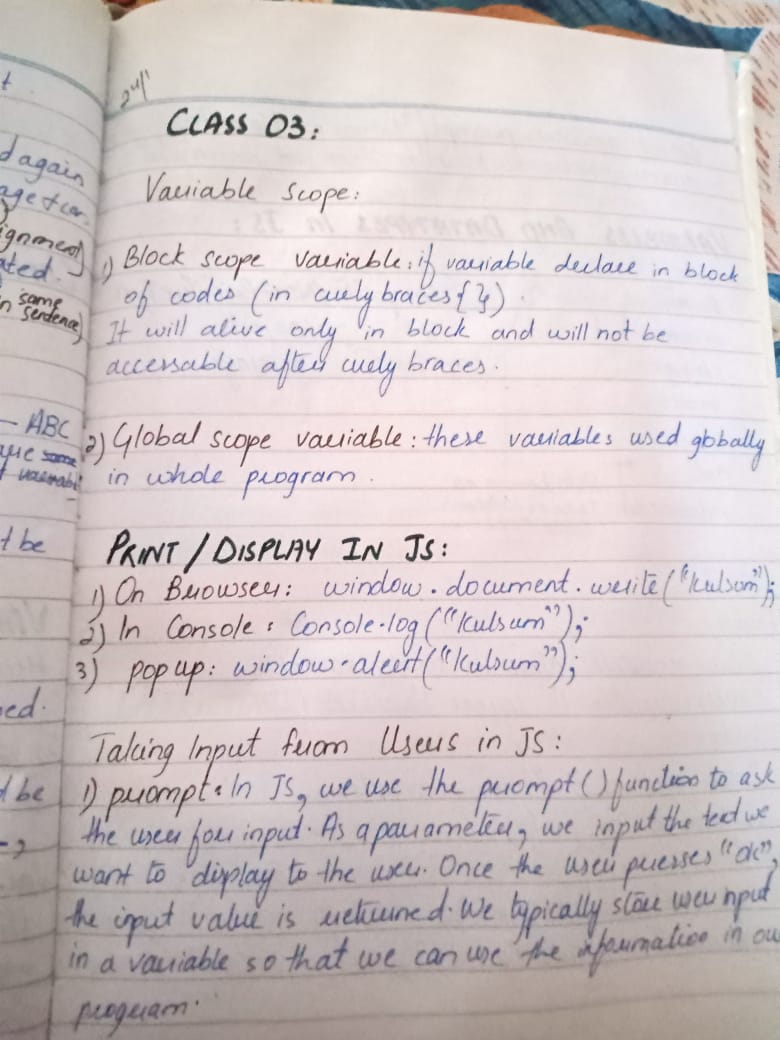 24/1
CLASS 03:
Variable Scope:
1) Block scope variable: if variable declare in block
of codes (in curly braces { }).
It will alive only in block and will not be
accessable after curly braces.
2) Global scope variable: these variables used globally
in whole program.
PRINT / DISPLAY IN JS:
1) On Browser: window.document.write("Kulsum");
2) In Console: Console.log("Kulsum");
3) pop up: window.alert("Kulsum");
Taking Input from Users in JS:
1) prompt: In JS, we use the prompt() function to ask
the user for input. As a parameter, we input the text we
want to display to the user. Once the user presses "ok",
the input value is returned. We typically store user input
in a variable so that we can use the information in our
program.
t
d again
ated.
in same
sentence)
- ABC
t be